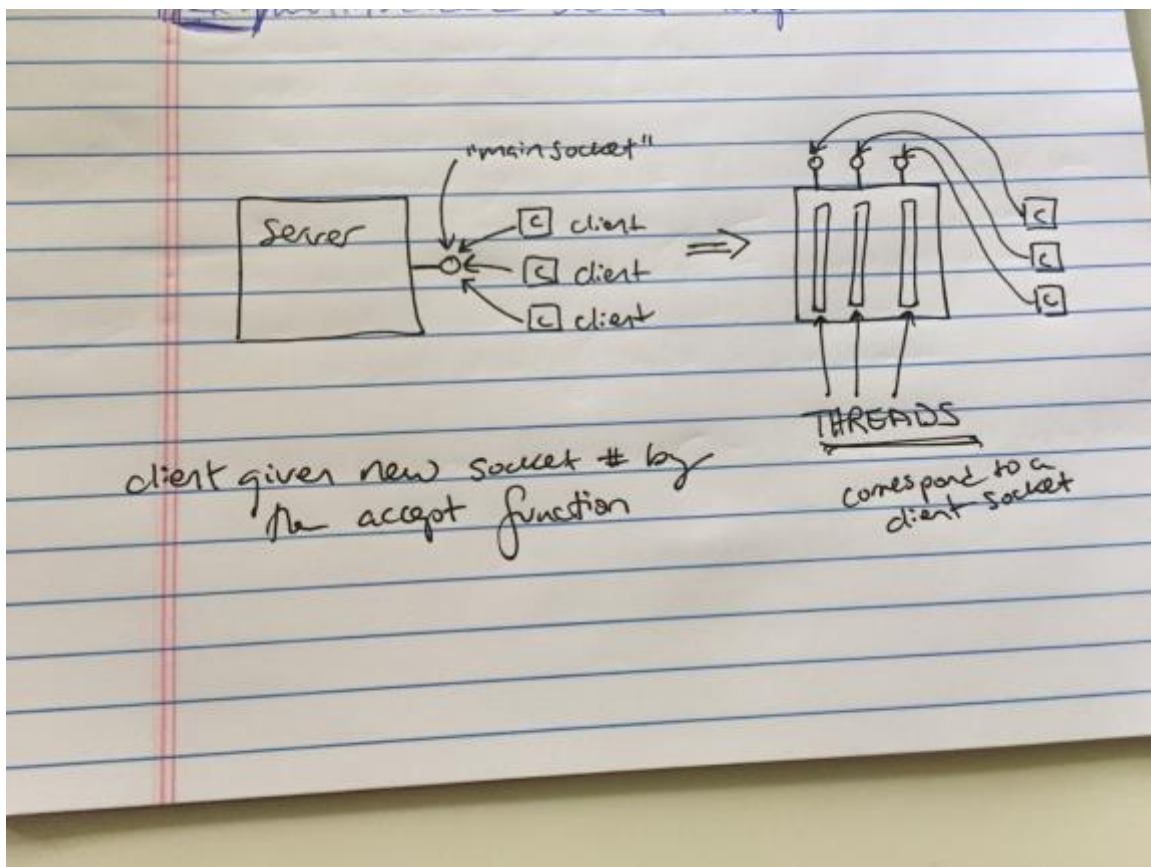 "main socket"
Server
C client
C client
C client
C
C
C
THREADS
correspond to a
client socket
client given new socket # by
the accept function